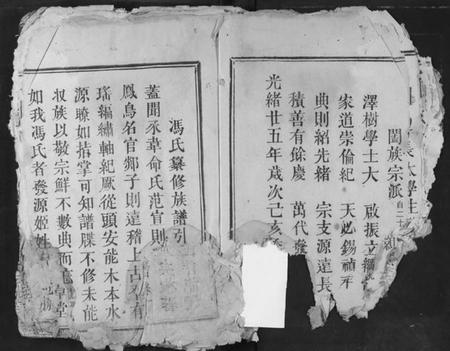 闔族宗派自二十
澤樹學士大　啟振立綱
家道崇倫紀　天必錫禎
典則紹先緒　宗支源遠長
積善有餘慶　萬代發
光緒廿五年歲次己亥
馮氏纂修族譜引
蓋聞豕韋命氏范宣則
鳳鳥名官郯子則遠稽上古
瑤編繡軸紀厥從頭安能木本水
源瞭如指掌可知譜牒不修未能
収族以敬宗鮮不數典而
如我馮氏者發源姬姓